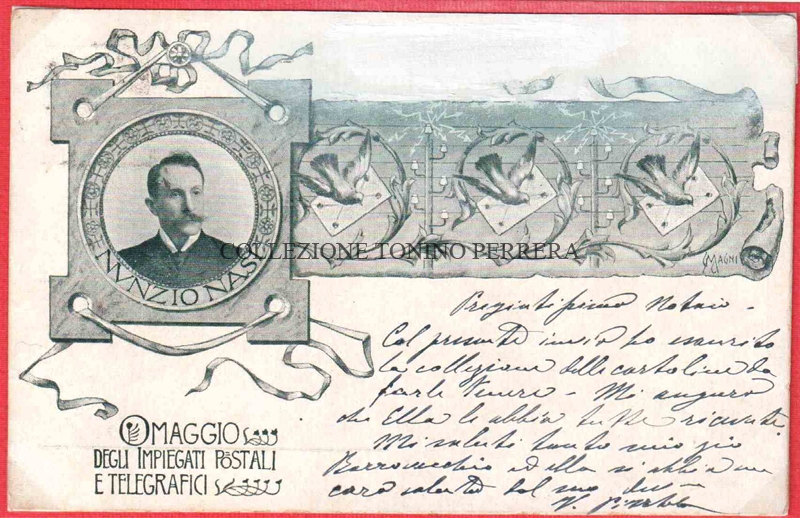 NVNZIO NASI
COLLEZIONE TONINO PERRERA
MAGNI
OMAGGIO
DEGLI IMPIEGATI POSTALI
E TELEGRAFICI
Pregiatissimo Notaio -
Col presente invio ho esaurito
la collezione delle cartoline da
farle tenere - Mi auguro
che Ella le abbia tutte ricevute.
Mi saluti tanto mio zio
ed ella si abbia un
caro saluto dal suo